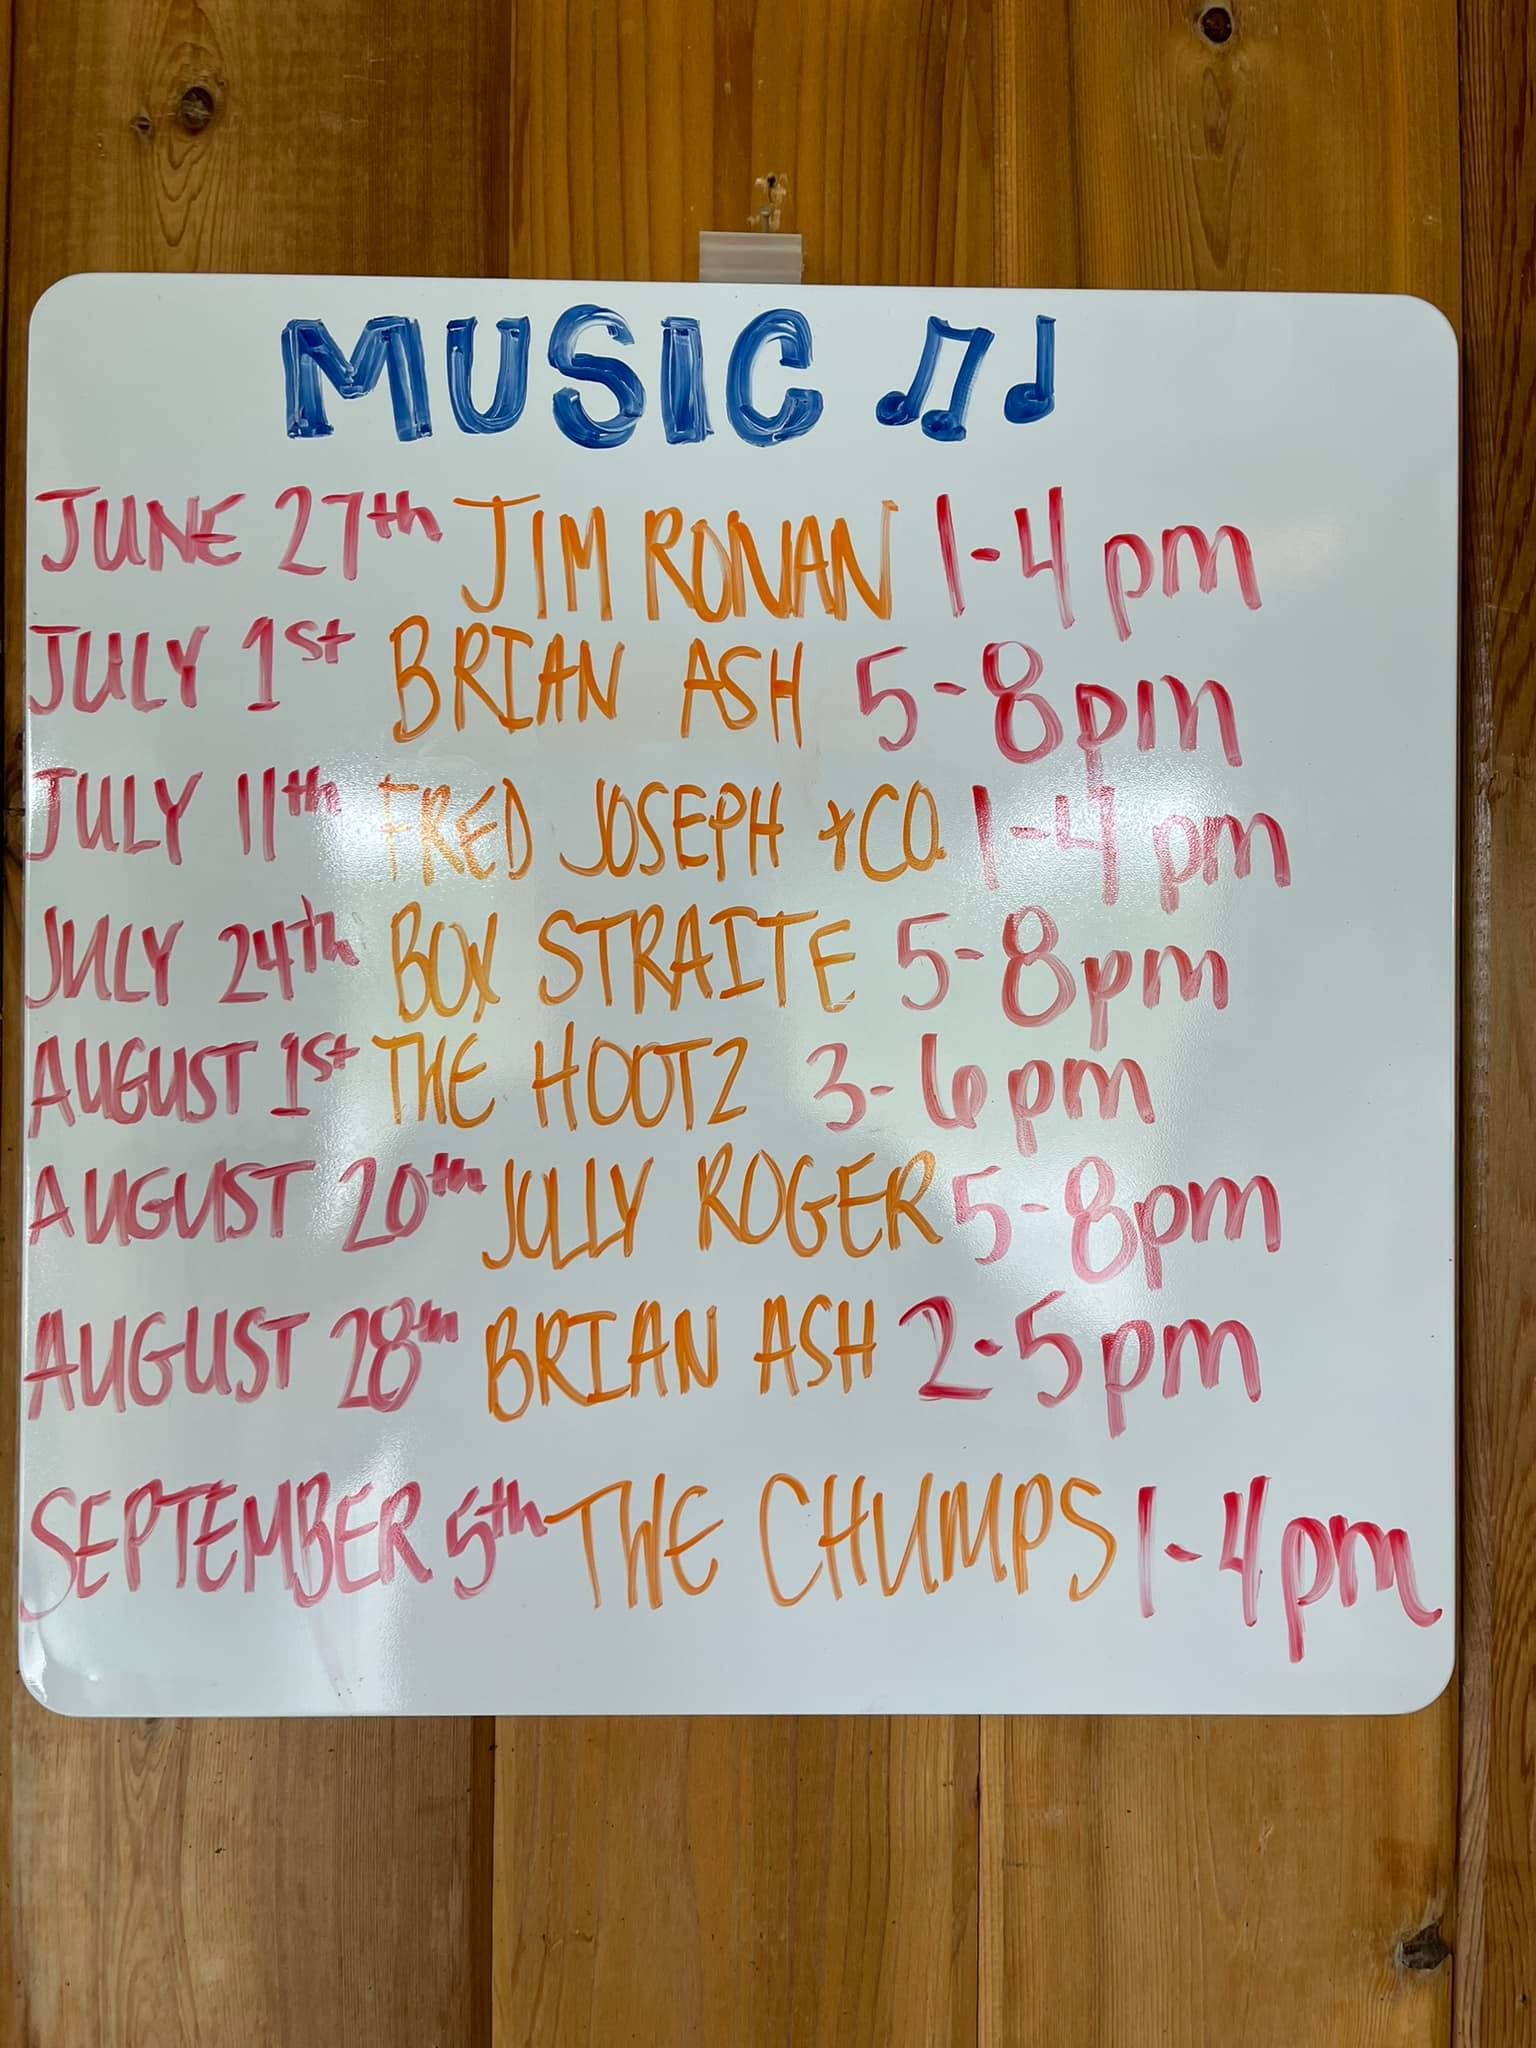 MUSIC ♫ ♩
JUNE 27th JIM RONAN 1-4pm
JULY 1st BRIAN ASH 5-8pm
JULY 11th FRED JOSEPH + CO. 1-4pm
JULY 24th BOX STRAITE 5-8pm
AUGUST 1st THE HOOTZ 3-6pm
AUGUST 20th JOLLY ROGER 5-8pm
AUGUST 28th BRIAN ASH 2-5pm
SEPTEMBER 5th THE CHUMPS 1-4pm